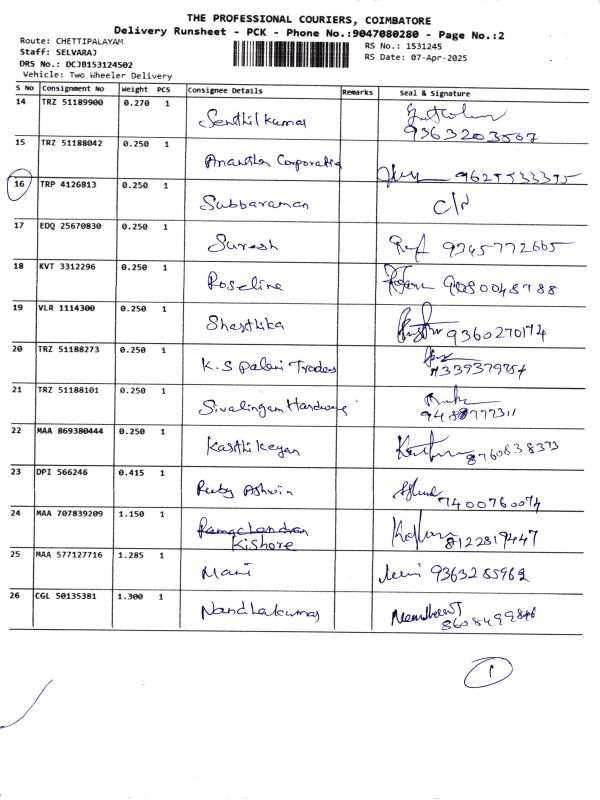 THE PROFESSIONAL COURIERS, COIMBATORE
Delivery Runsheet - PCK - Phone No.:9047080280 - Page No.:2
Route: CHETTIPALAYAM RS No.: 1531245
Staff: SELVARAJ RS Date: 07-Apr-2025
DRS No.: DCJB153124502
Vehicle: Two Wheeler Delivery
S No Consignment No Weight PCS Consignee Details Remarks Seal & Signature
14 TRZ 51189900 0.270 1 Senthil kumar 9363203507
15 TRZ 51188042 0.250 1 Anantha Corporation
16 TRP 4126813 0.250 1 Subbaraman
17 EDQ 25670830 0.250 1 Suresh 9345772665
18 KVT 3312296 0.250 1 Roseline 9080048788
19 VLR 1114300 0.250 1 Shasthika 9360270174
20 TRZ 51188273 0.250 1 K.S Palani Traders 7339379754
21 TRZ 51188101 0.250 1 Sivalingam Hardware
22 MAA 869380444 0.250 1 Kasthikeyan 8760838373
23 DPI 566246 0.415 1 Ruby Ashwin 7400760074
24 MAA 707839209 1.150 1 Ramachandran
Kishore 8122819447
25 MAA 577127716 1.285 1 Mani 9363285962
26 CGL 50135381 1.300 1 Nandhakumar
1